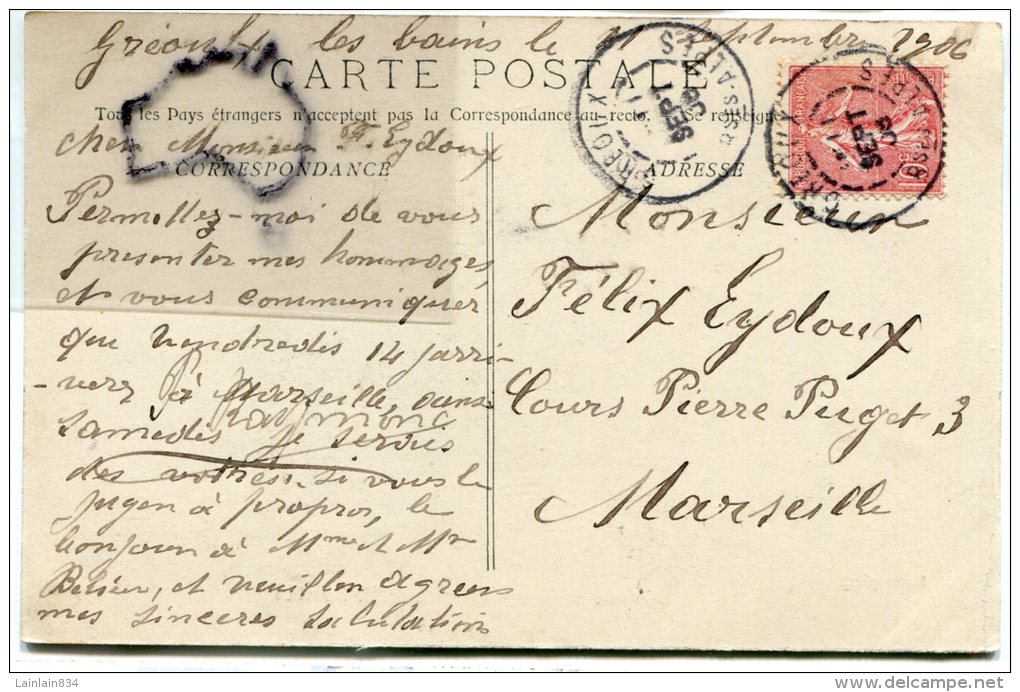 Gréoulx les bains le 11 Septembre 1906
CARTE POSTALE
Tous les Pays étrangers n'acceptent pas la Correspondance au recto. Se renseigne
cher Monsieur F. Eydoux
CORRESPONDANCE
Permettez-moi de vous
presenter mes hommages
et vous communiquer
que Vendredis 14 j'arri-
-verz à Marseille, dans
Samedis je serais
des votres. si vous le
jugen à propos, le
bonjour à Mme & Mr
et veuillen agreer
mes sinceres salutations
Raymond
ADRESSE
Monsieur
Félix Eydoux
Cours Pierre Puget 3
Marseille
SEPT
06
BSES-ALPES
SEPT
06
10c
Lainlain834
http://www.delcampe.net